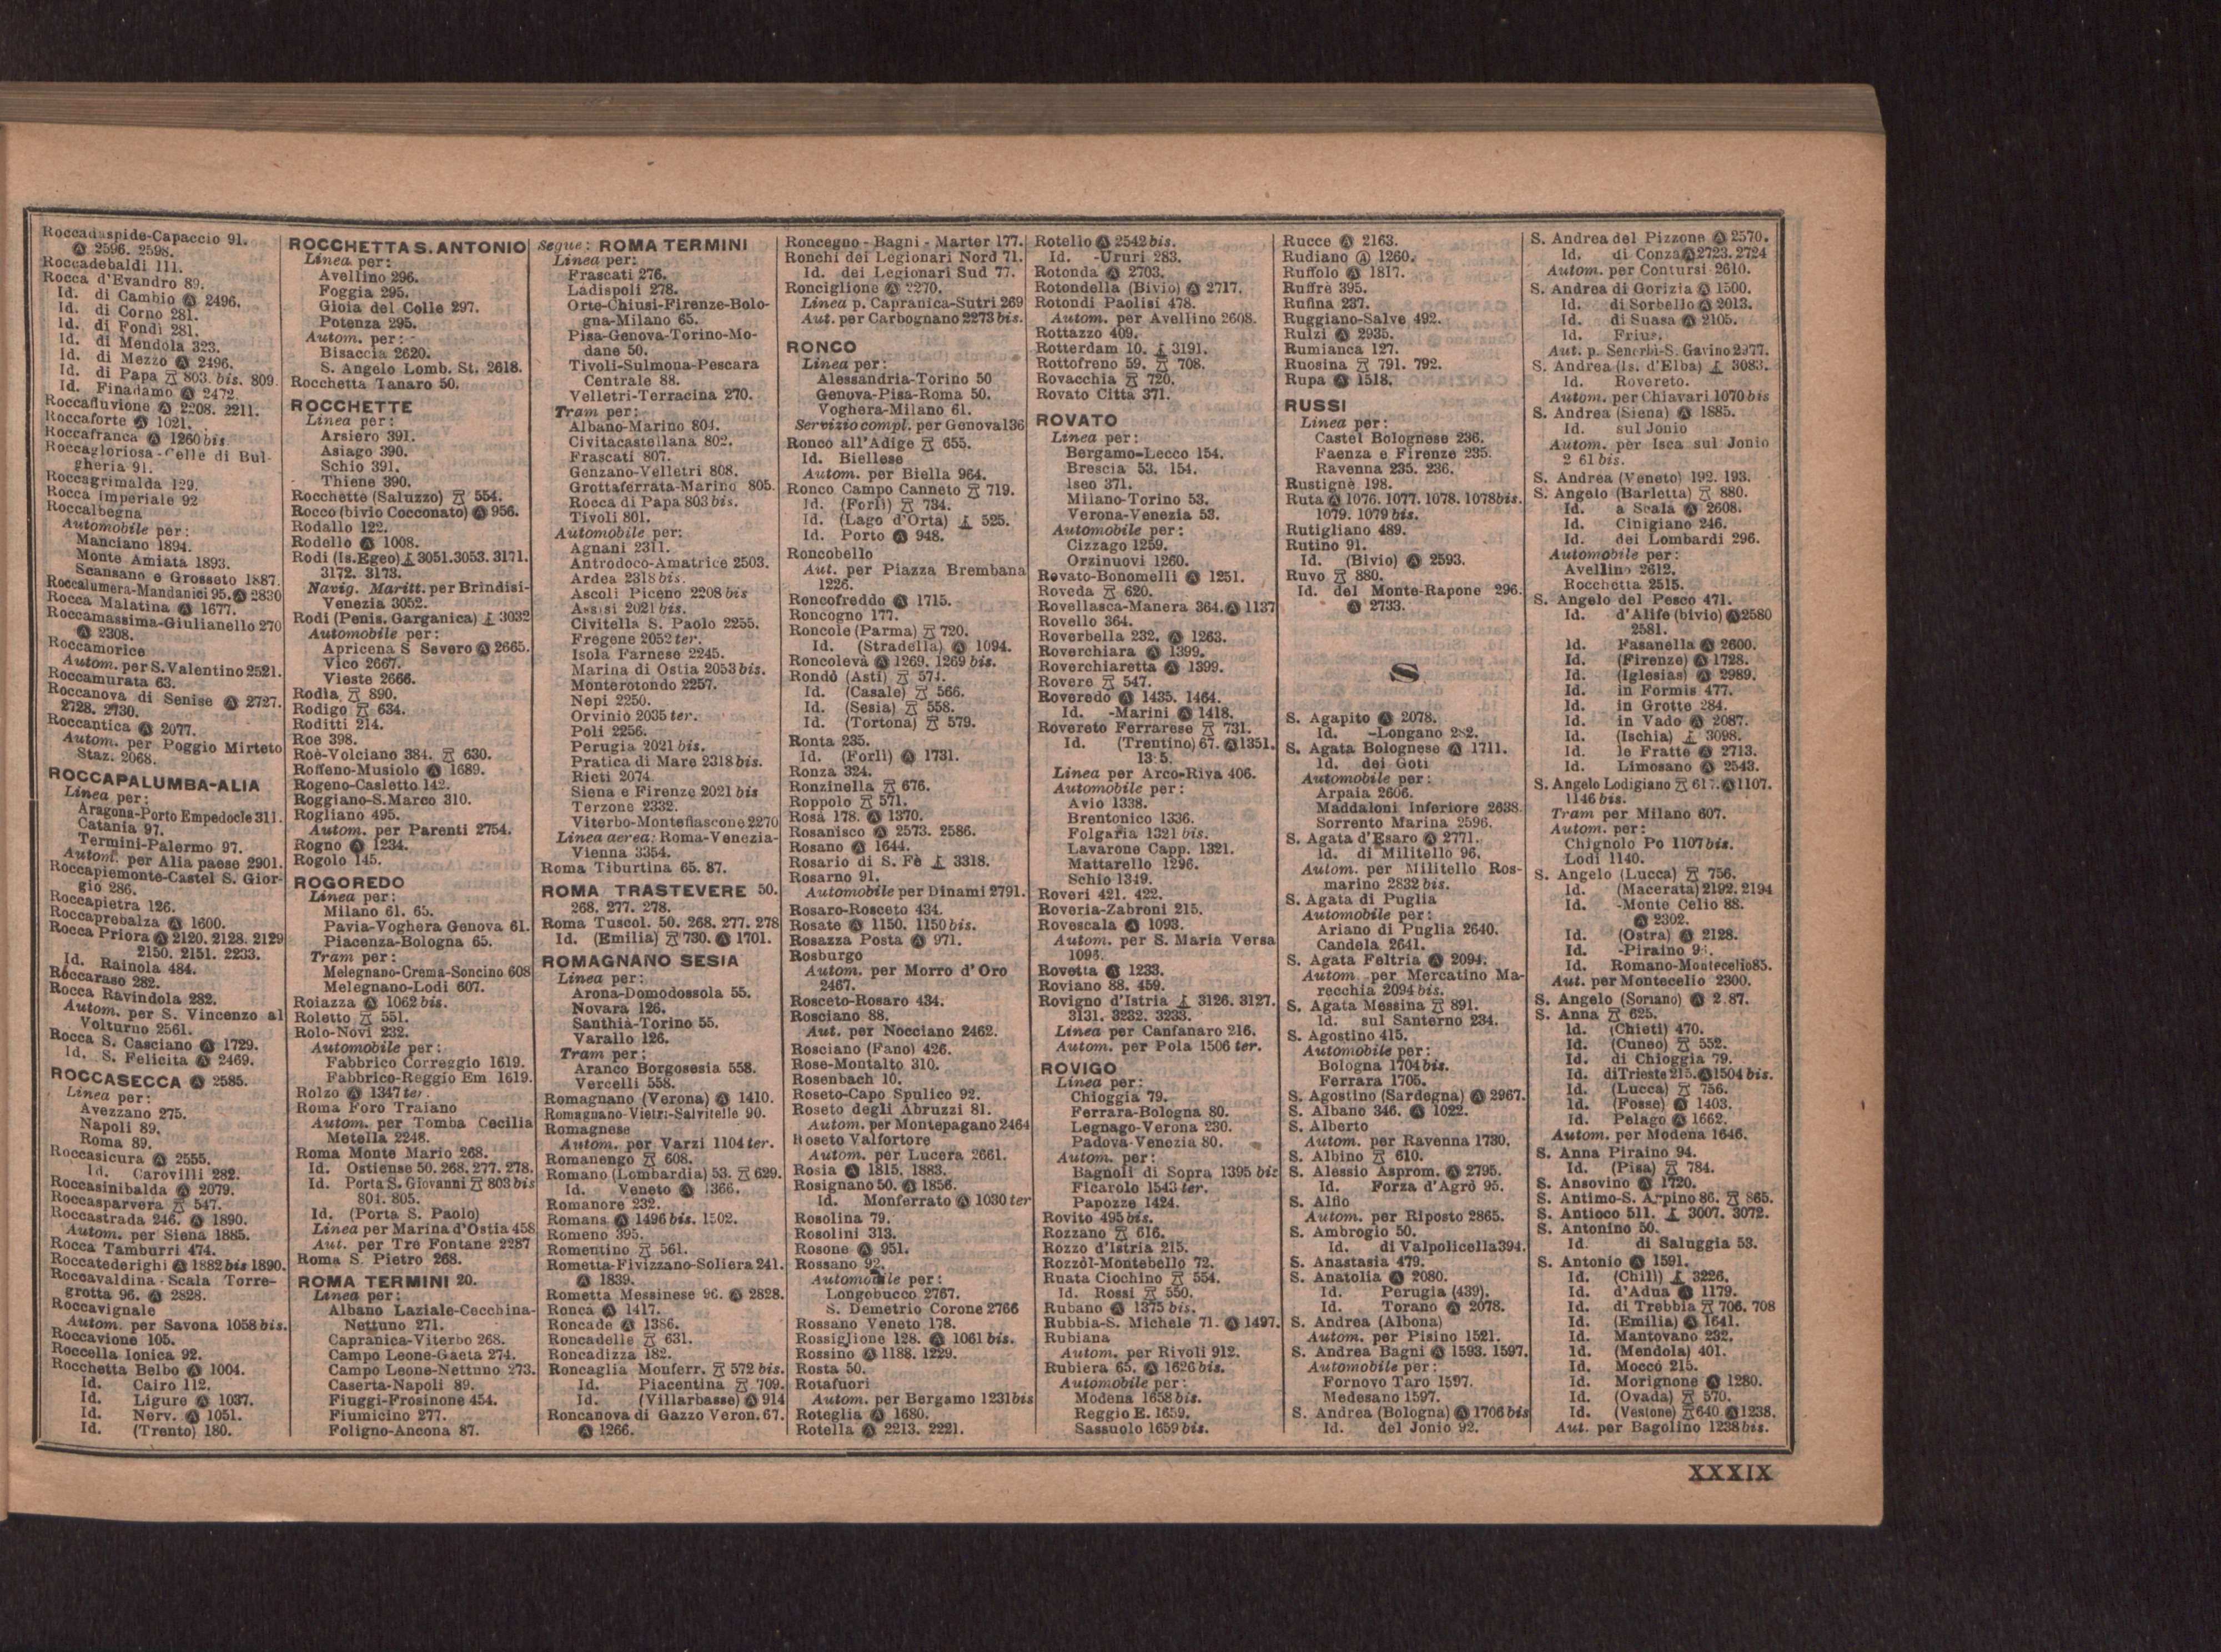 Roccadaspide-Capaccio 91.
Ⓐ 2596. 2598.
Roccadebaldi 111.
Rocca d'Evandro 89.
Id. di Cambio Ⓐ 2496.
Id. di Corno 281.
Id. di Fondi 281.
Id. di Mendola 323.
Id. di Mezzo Ⓐ 2496.
Id. di Papa 803 bis. 809.
Id. Finadamo Ⓐ 2472.
Roccafluvione Ⓐ 2208. 2211.
Roccaforte Ⓐ 1021.
Roccafranca Ⓐ 1260 bis
Roccagloriosa-Celle di Bul-
gheria 91.
Roccagrimalda 129.
Rocca Imperiale 92
Roccalbegna
Automobile per:
Manciano 1894.
Monte Amiata 1893.
Scansano e Grosseto 1887.
Roccalumera-Mandanici 95. Ⓐ 2830
Rocca Malatina Ⓐ 1677.
Roccamassima-Giulianello 270
Ⓐ 2308.
Roccamorice
Autom. per S. Valentino 2521.
Roccamurata 63.
Roccanova di Senise Ⓐ 2727.
2728. 2730.
Roccantica Ⓐ 2077.
Autom. per Poggio Mirteto
Staz. 2068.
ROCCAPALUMBA-ALIA
Linea per:
Aragona-Porto Empedocle 311.
Catania 97.
Termini-Palermo 97.
Autom. per Alia paese 2901.
Roccapiemonte-Castel S. Gior-
gio 286.
Roccapietra 126.
Roccaprebalza Ⓐ 1600.
Rocca Priora Ⓐ 2120. 2128. 2129
2150. 2151. 2233.
Id. Rainola 484.
Roccaraso 282.
Rocca Ravindola 282.
Autom. per S. Vincenzo al
Volturno 2561.
Rocca S. Casciano Ⓐ 1729.
Id. S. Felicita Ⓐ 2469.
ROCCASECCA Ⓐ 2585.
Linea per:
Avezzano 275.
Napoli 89.
Roma 89.
Roccasicura Ⓐ 2555.
Id. Carovilli 282.
Roccasinibalda Ⓐ 2079.
Roccasparvera 547.
Roccastrada 246. Ⓐ 1890.
Autom. per Siena 1885.
Rocca Tamburri 474.
Roccatederighi Ⓐ 1882 bis 1890.
Roccavaldina-Scala Torre-
grotta 96. Ⓐ 2828.
Roccavignale
Autom. per Savona 1058 bis.
Roccavione 105.
Roccella Ionica 92.
Rocchetta Belbo Ⓐ 1004.
Id. Cairo 112.
Id. Ligure Ⓐ 1037.
Id. Nerv. Ⓐ 1051.
Id. (Trento) 180.
ROCCHETTA S. ANTONIO
Linea per:
Avellino 296.
Foggia 295.
Gioia del Colle 297.
Potenza 295.
Autom. per:
Bisaccia 2620.
S. Angelo Lomb. St. 2618.
Rocchetta Tanaro 50.
ROCCHETTE
Linea per:
Arsiero 391.
Asiago 390.
Schio 391.
Thiene 390.
Rocchette (Saluzzo) 554.
Rocco (bivio Cocconato) Ⓐ 956.
Rodallo 122.
Rodello Ⓐ 1008.
Rodi (Is. Egeo) 3051. 3053. 3171.
3172. 3173.
Navig. Maritt. per Brindisi-
Venezia 3052.
Rodi (Penis. Garganica) 3032
Automobile per:
Apricena S Severo Ⓐ 2665.
Vico 2667.
Vieste 2666.
Rodia 890.
Rodigo 634.
Roditti 214.
Roe 398.
Roè-Volciano 384. 630.
Roffeno-Musiolo Ⓐ 1689.
Rogeno-Casletto 142.
Roggiano-S. Marco 310.
Rogliano 495.
Autom. per Parenti 2754.
Rogno Ⓐ 1234.
Rogolo 145.
ROGOREDO
Linea per:
Milano 61. 65.
Pavia-Voghera Genova 61.
Piacenza-Bologna 65.
Tram per:
Melegnano-Crema-Soncino 608
Melegnano-Lodi 607.
Roiazza Ⓐ 1062 bis.
Roletto 551.
Rolo-Novi 232.
Automobile per:
Fabbrico Correggio 1619.
Fabbrico-Reggio Em 1619.
Rolzo Ⓐ 1347 ter.
Roma Foro Traiano
Autom. per Tomba Cecilia
Metella 2248.
Roma Monte Mario 268.
Id. Ostiense 50. 268. 277. 278.
Id. Porta S. Giovanni 803 bis
804. 805.
Id. (Porta S. Paolo)
Linea per Marina d'Ostia 458
Aut. per Tre Fontane 2287
Roma S. Pietro 268.
ROMA TERMINI 20.
Linea per:
Albano Laziale-Cecchina-
Nettuno 271.
Capranica-Viterbo 268.
Campo Leone-Gaeta 274.
Campo Leone-Nettuno 273.
Caserta-Napoli 89.
Fiuggi-Frosinone 454.
Fiumicino 277.
Foligno-Ancona 87.
Segue: ROMA TERMINI
Linea per:
Frascati 276.
Ladispoli 278.
Orte-Chiusi-Firenze-Bolo-
gna-Milano 65.
Pisa-Genova-Torino-Mo-
dane 50.
Tivoli-Sulmona-Pescara
Centrale 88.
Velletri-Terracina 270.
Tram per:
Albano-Marino 804.
Civitacastellana 802.
Frascati 807.
Genzano-Velletri 808.
Grottaferrata-Marino 805.
Rocca di Papa 803 bis.
Tivoli 801.
Automobile per:
Agnani 2311.
Antrodoco-Amatrice 2503.
Ardea 2318 bis.
Ascoli Piceno 2208 bis
Assisi 2021 bis.
Civitella S. Paolo 2255.
Fregene 2052 ter.
Isola Farnese 2245.
Marina di Ostia 2053 bis.
Monterotondo 2257.
Nepi 2250.
Orvinio 2035 ter.
Poli 2256.
Perugia 2021 bis.
Pratica di Mare 2318 bis.
Rieti 2074.
Siena e Firenze 2021 bis
Terzone 2332.
Viterbo-Montefiascone 2270
Linea aerea: Roma-Venezia-
Vienna 3354.
Roma Tiburtina 65. 87.
ROMA TRASTEVERE 50.
268. 277. 278.
Roma Tuscol. 50. 268. 277. 278
Id. (Emilia) 730. Ⓐ 1701.
ROMAGNANO SESIA
Linea per:
Arona-Domodossola 55.
Novara 126.
Santhià-Torino 55.
Varallo 126.
Tram per:
Aranco Borgosesia 558.
Vercelli 558.
Romagnano (Verona) Ⓐ 1410.
Romagnano-Vietri-Salvitelle 90.
Romagnese
Autom. per Varzi 1104 ter.
Romanengo 608.
Romano (Lombardia) 53. 629.
Id. Veneto Ⓐ 1366.
Romanore 232.
Romans Ⓐ 1496 bis. 1502.
Romeno 395.
Romentino 561.
Rometta-Fivizzano-Soliera 241.
Ⓐ 1839.
Rometta Messinese 96. Ⓐ 2828.
Roncà Ⓐ 1417.
Roncade Ⓐ 1386.
Roncadelle 631.
Roncadizza 182.
Roncaglia Monferr. 572 bis.
Id. Piacentina 709.
Id. (Villarbasse) Ⓐ 914
Roncanova di Gazzo Veron. 67.
Ⓐ 1266.
Roncegno-Bagni-Marter 177.
Ronchi dei Legionari Nord 71.
Id. dei Legionari Sud 77.
Ronciglione Ⓐ 2270.
Linea p. Capranica-Sutri 269
Aut. per Carbognano 2273 bis.
RONCO
Linea per:
Alessandria-Torino 50
Genova-Pisa-Roma 50.
Voghera-Milano 61.
Servizio compl. per Genova 136
Ronco all'Adige 655.
Id. Biellese
Autom. per Biella 964.
Ronco Campo Canneto 719.
Id. (Forlì) 734.
Id. (Lago d'Orta) 525.
Id. Porto Ⓐ 948.
Roncobello
Aut. per Piazza Brembana
1226.
Roncofreddo Ⓐ 1715.
Roncogno 177.
Roncole (Parma) 720.
Id. (Stradella) Ⓐ 1094.
Roncolevà Ⓐ 1269. 1269 bis.
Rondò (Asti) 574.
Id. (Casale) 566.
Id. (Sesia) 558.
Id. (Tortona) 579.
Ronta 235.
Id. (Forlì) Ⓐ 1731.
Ronza 324.
Ronzinella 676.
Roppolo 571.
Rosà 178. Ⓐ 1370.
Rosanisco Ⓐ 2573. 2586.
Rosano Ⓐ 1644.
Rosario di S. Fè 3318.
Rosarno 91.
Automobile per Dinami 2791.
Rosaro-Rosceto 434.
Rosate Ⓐ 1150. 1150 bis.
Rosazza Posta Ⓐ 971.
Rosburgo
Autom. per Morro d'Oro
2467.
Rosceto-Rosaro 434.
Rosciano 88.
Aut. per Nocciano 2462.
Rosciano (Fano) 426.
Rose-Montalto 310.
Rosenbach 10.
Roseto-Capo Spulico 92.
Roseto degli Abruzzi 81.
Autom. per Montepagano 2464
Roseto Valfortore
Autom. per Lucera 2661.
Rosia Ⓐ 1815. 1883.
Rosignano 50. Ⓐ 1856.
Id. Monferrato Ⓐ 1030 ter
Rosolina 79.
Rosolini 313.
Rosone Ⓐ 951.
Rossano 92.
Automobile per:
Longobucco 2767.
S. Demetrio Corone 2766
Rossano Veneto 178.
Rossiglione 128. Ⓐ 1061 bis.
Rossino Ⓐ 1188. 1229.
Rosta 50.
Rotafuori
Autom. per Bergamo 1231 bis
Roteglia Ⓐ 1680.
Rotella Ⓐ 2213. 2221.
Rotello Ⓐ 2542 bis.
Id. -Ururi 283.
Rotonda Ⓐ 2703.
Rotondella (Bivio) Ⓐ 2717.
Rotondi Paolisi 478.
Autom. per Avellino 2608.
Rottazzo 409.
Rotterdam 10. 3191.
Rottofreno 59. 708.
Rovacchia 720.
Rovato Città 371.
ROVATO
Linea per:
Bergamo-Lecco 154.
Brescia 53. 154.
Iseo 371.
Milano-Torino 53.
Verona-Venezia 53.
Automobile per:
Cizzago 1259.
Orzinuovi 1260.
Rovato-Bonomelli Ⓐ 1251.
Roveda 620.
Rovellasca-Manera 364. Ⓐ 1137
Rovello 364.
Roverbella 232. Ⓐ 1263.
Roverchiara Ⓐ 1399.
Roverchiaretta Ⓐ 1399.
Rovere 547.
Roveredo Ⓐ 1435. 1464.
Id. -Marini Ⓐ 1418.
Rovereto Ferrarese 731.
Id. (Trentino) 67. Ⓐ 1351.
Linea per Arco-Riva 406.
Automobile per:
Avio 1338.
Brentonico 1336.
Folgaria 1321 bis.
Lavarone Capp. 1321.
Mattarello 1296.
Schio 1349.
Roveri 421. 422.
Roveria-Zabroni 215.
Rovescala Ⓐ 1093.
Autom. per S. Maria Versa
1096.
Rovetta Ⓐ 1233.
Roviano 88. 459.
Rovigno d'Istria 3126. 3127.
3131. 3232. 3233.
Linea per Canfanaro 216.
Autom. per Pola 1506 ter.
ROVIGO
Linea per:
Chioggia 79.
Ferrara-Bologna 80.
Legnago-Verona 230.
Padova-Venezia 80.
Autom. per:
Bagnoli di Sopra 1395 bis
Ficarolo 1543 ter.
Papozze 1424.
Rovito 495 bis.
Rozzano 616.
Rozzo d'Istria 215.
Rozzòl-Montebello 72.
Ruata Ciochino 554.
Id. Rossi 550.
Rubano Ⓐ 1375 bis.
Rubbia-S. Michele 71. Ⓐ 1497.
Rubiana
Autom. per Rivoli 912.
Rubiera 65. Ⓐ 1626 bis.
Automobile per:
Modena 1658 bis.
Reggio E. 1659.
Sassuolo 1659 bis.
Rucce Ⓐ 2163.
Rudiano Ⓐ 1260.
Ruffolo Ⓐ 1817.
Ruffrè 395.
Rufina 237.
Ruggiano-Salve 492.
Rulzi Ⓐ 2935.
Rumianca 127.
Ruosina 791. 792.
Rupa Ⓐ 1518.
RUSSI
Linea per:
Castel Bolognese 236.
Faenza e Firenze 235.
Ravenna 235. 236.
Rustignè 198.
Ruta Ⓐ 1076. 1077. 1078. 1078 bis.
1079. 1079 bis.
Rutigliano 489.
Rutino 91.
Id. (Bivio) Ⓐ 2593.
Ruvo 880.
Id. del Monte-Rapone 296.
Ⓐ 2733.
S
S. Agapito Ⓐ 2078.
Id. -Longano 282.
S. Agata Bolognese Ⓐ 1711.
Id. dei Goti
Automobile per:
Arpaia 2606.
Maddaloni Inferiore 2638.
Sorrento Marina 2596.
S. Agata d'Esaro Ⓐ 2771.
Id. di Militello 96.
Autom. per Militello Ros-
marino 2832 bis.
S. Agata di Puglia
Automobile per:
Ariano di Puglia 2640.
Candela 2641.
S. Agata Feltria Ⓐ 2094.
Autom. per Mercatino Ma-
recchia 2094 bis.
S. Agata Messina 891.
Id. sul Santerno 234.
S. Agostino 415.
Automobile per:
Bologna 1704 bis.
Ferrara 1705.
S. Agostino (Sardegna) Ⓐ 2967.
S. Albano 346. Ⓐ 1022.
S. Alberto
Autom. per Ravenna 1730.
S. Albino 610.
S. Alessio Asprom. Ⓐ 2795.
Id. Forza d'Agrò 95.
S. Alfio
Autom. per Riposto 2865.
S. Ambrogio 50.
Id. di Valpolicella 394.
S. Anastasia 479.
S. Anatolia Ⓐ 2080.
Id. Perugia (439).
Id. Torano Ⓐ 2078.
S. Andrea (Albona)
Autom. per Pisino 1521.
S. Andrea Bagni Ⓐ 1593. 1597.
Automobile per:
Fornovo Taro 1597.
Medesano 1597.
S. Andrea (Bologna) Ⓐ 1706 bis
Id. del Jonio 92.
S. Andrea del Pizzone Ⓐ 2570.
Id. di Conza Ⓐ 2723. 2724
Autom. per Contursi 2610.
S. Andrea di Gorizia Ⓐ 1500.
Id. di Sorbello Ⓐ 2013.
Id. di Suasa Ⓐ 2105.
Id. Frius.
Aut. p. Senorbì-S. Gavino 2977.
S. Andrea (Is. d'Elba) 3083.
Id. Rovereto.
Autom. per Chiavari 1070 bis
S. Andrea (Siena) Ⓐ 1885.
Id. sul Jonio
Autom. per Isca sul Jonio
S. Andrea (Veneto) 192. 193.
S. Angelo (Barletta) 880.
Id. a Scala Ⓐ 2608.
Id. Cinigiano 246.
Id. dei Lombardi 296.
Automobile per:
Avellino 2612.
Rocchetta 2515.
S. Angelo del Pesco 471.
Id. d'Alife (bivio) Ⓐ 2580
2581.
Id. Fasanella Ⓐ 2600.
Id. (Firenze) Ⓐ 1728.
Id. (Iglesias) Ⓐ 2989.
Id. in Formis 477.
Id. in Grotte 284.
Id. in Vado Ⓐ 2087.
Id. (Ischia) 3098.
Id. le Fratte Ⓐ 2713.
Id. Limosano Ⓐ 2543.
S. Angelo Lodigiano 617. Ⓐ 1107.
1146 bis.
Tram per Milano 607.
Autom. per:
Chignolo Po 1107 bis.
Lodi 1140.
S. Angelo (Lucca) 756.
Id. (Macerata) 2192. 2194
Id. -Monte Celio 88.
Ⓐ 2302.
Id. (Ostra) Ⓐ 2128.
Id. -Piraino
Id. Romano-Montecelio 85.
Aut. per Montecelio 2300.
S. Angelo (Soriano) Ⓐ
S. Anna 625.
Id. (Chieti) 470.
Id. (Cuneo) 552.
Id. di Chioggia 79.
Id. di Trieste 215. Ⓐ 1504 bis.
Id. (Lucca) 756.
Id. (Fosse) Ⓐ 1403.
Id. Pelago Ⓐ 1662.
Autom. per Modena 1646.
S. Anna Piraino 94.
Id. (Pisa) 784.
S. Ansovino Ⓐ 1720.
S. Antimo-S. Arpino 86. 865.
S. Antioco 511. 3007. 3072.
S. Antonino 50.
Id. di Saluggia 53.
S. Antonio Ⓐ 1591.
Id. (Chilì) 3226.
Id. d'Adua Ⓐ 1179.
Id. di Trebbia 706. 708
Id. (Emilia) Ⓐ 1641.
Id. Mantovano 232.
Id. (Mendola) 401.
Id. Moccò 215.
Id. Morignone Ⓐ 1280.
Id. (Ovada) 570.
Id. (Vestone) 640 Ⓐ 1238.
Aut. per Bagolino 1238 bis.
XXXIX